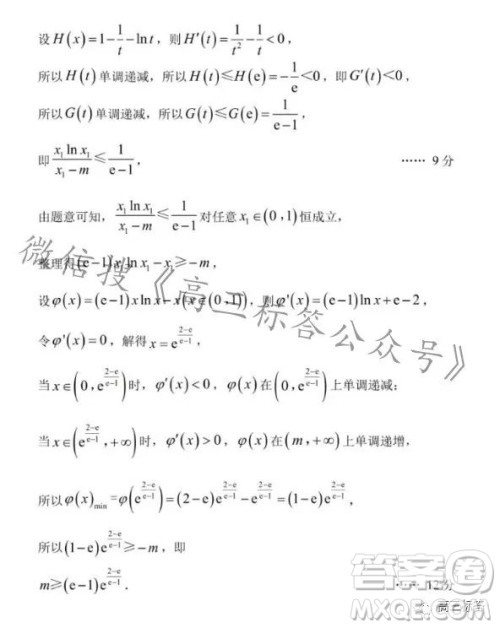 设H(x)=1-1/t-ln t，则H'(t)=1/t²-1/t<0，
所以H(t)单调递减，所以H(t)≤H(e)=-1/e<0，即G'(t)<0，
所以G(t)单调递减，所以G(t)≤G(e)=1/(e-1)，
即 x₁ln x₁/(x₁-m)≤1/(e-1)，
······ 9分
由题意可知，x₁ln x₁/(x₁-m)≤1/(e-1)对任意x₁∈(0,1)恒成立，
整理得(e-1)x₁ln x₁-x₁≥-m，
设φ(x)=(e-1)x ln x-x(x∈(0,1))，则φ'(x)=(e-1)ln x+e-2，
令φ'(x)=0，解得x=e^((2-e)/(e-1))，
当x∈(0,e^((2-e)/(e-1)))时，φ'(x)<0，φ(x)在(0,e^((2-e)/(e-1)))上单调递减；
当x∈(e^((2-e)/(e-1)),+∞)时，φ'(x)>0，φ(x)在(m,+∞)上单调递增，
所以φ(x)min=φ(e^((2-e)/(e-1)))=(2-e)e^((2-e)/(e-1))-e^((2-e)/(e-1))=(1-e)e^((2-e)/(e-1))，
所以(1-e)e^((2-e)/(e-1))≥-m，即
m≥(e-1)e^((2-e)/(e-1)).
12分
微信搜《高三标答公众号》
答案圈
MXQE.COM
高三标答